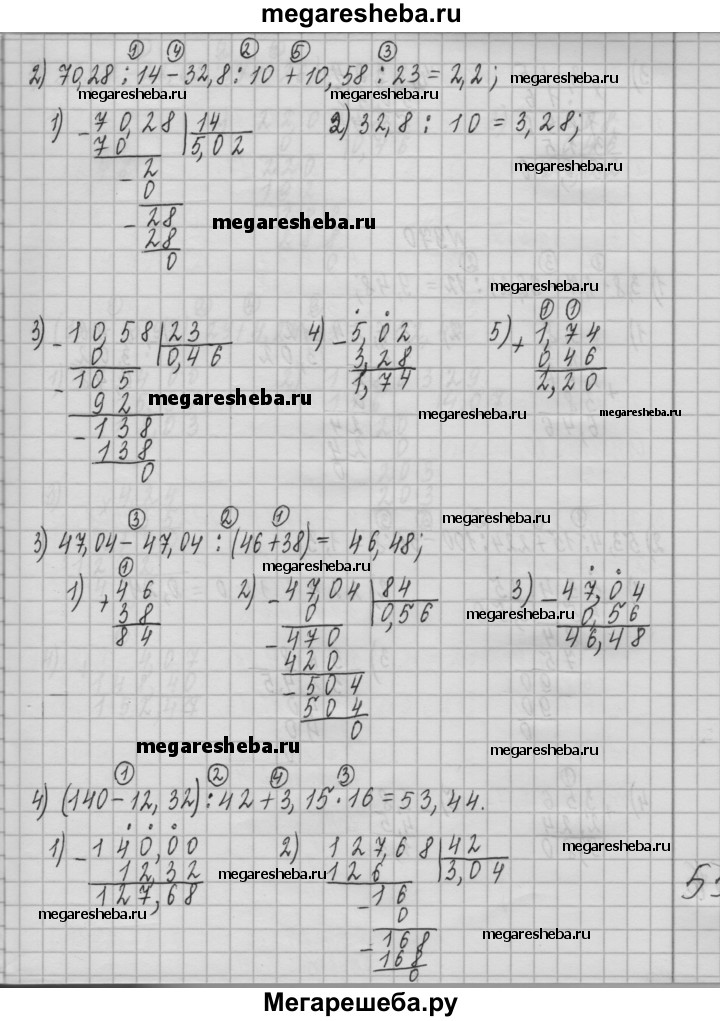 megaresheba.ru
① ④ ② ⑤ ③
2) 70,28 : 14 − 32,8 : 10 + 10,58 : 23 = 2,2; megaresheba.ru
megaresheba.ru megaresheba.ru
1) − 70,28 | 14 2) 32,8 : 10 = 3,28;
70 5,02
− 2 megaresheba.ru
0
− 28 megaresheba.ru
28
0
megaresheba.ru
① ①
3) − 10,58 | 23 4) − 5,02 5) + 1,74
0 0,46 3,28 0,46
− 105 1,74 2,20
92 megaresheba.ru megaresheba.ru megaresheba.ru
− 138
138
0
megaresheba.ru
③ ② ①
3) 47,04 − 47,04 : (46 + 38) = 46,48;
megaresheba.ru
①
1) + 46 2) − 47,04 | 84 3) − 47,04
38 0 0,56 megaresheba.ru 0,56
84 − 470 46,48
420
− 504
504
0
megaresheba.ru megaresheba.ru
① ② ④ ③
4) (140 − 12,32) : 42 + 3,15 · 16 = 53,44.
1) − 140,00 2) 127,68 | 42 megaresheba.ru
12,32 megaresheba.ru 126 3,04
127,68 − 16
megaresheba.ru 0
− 168 megaresheba.ru
168
0
Мегарешеба.ру